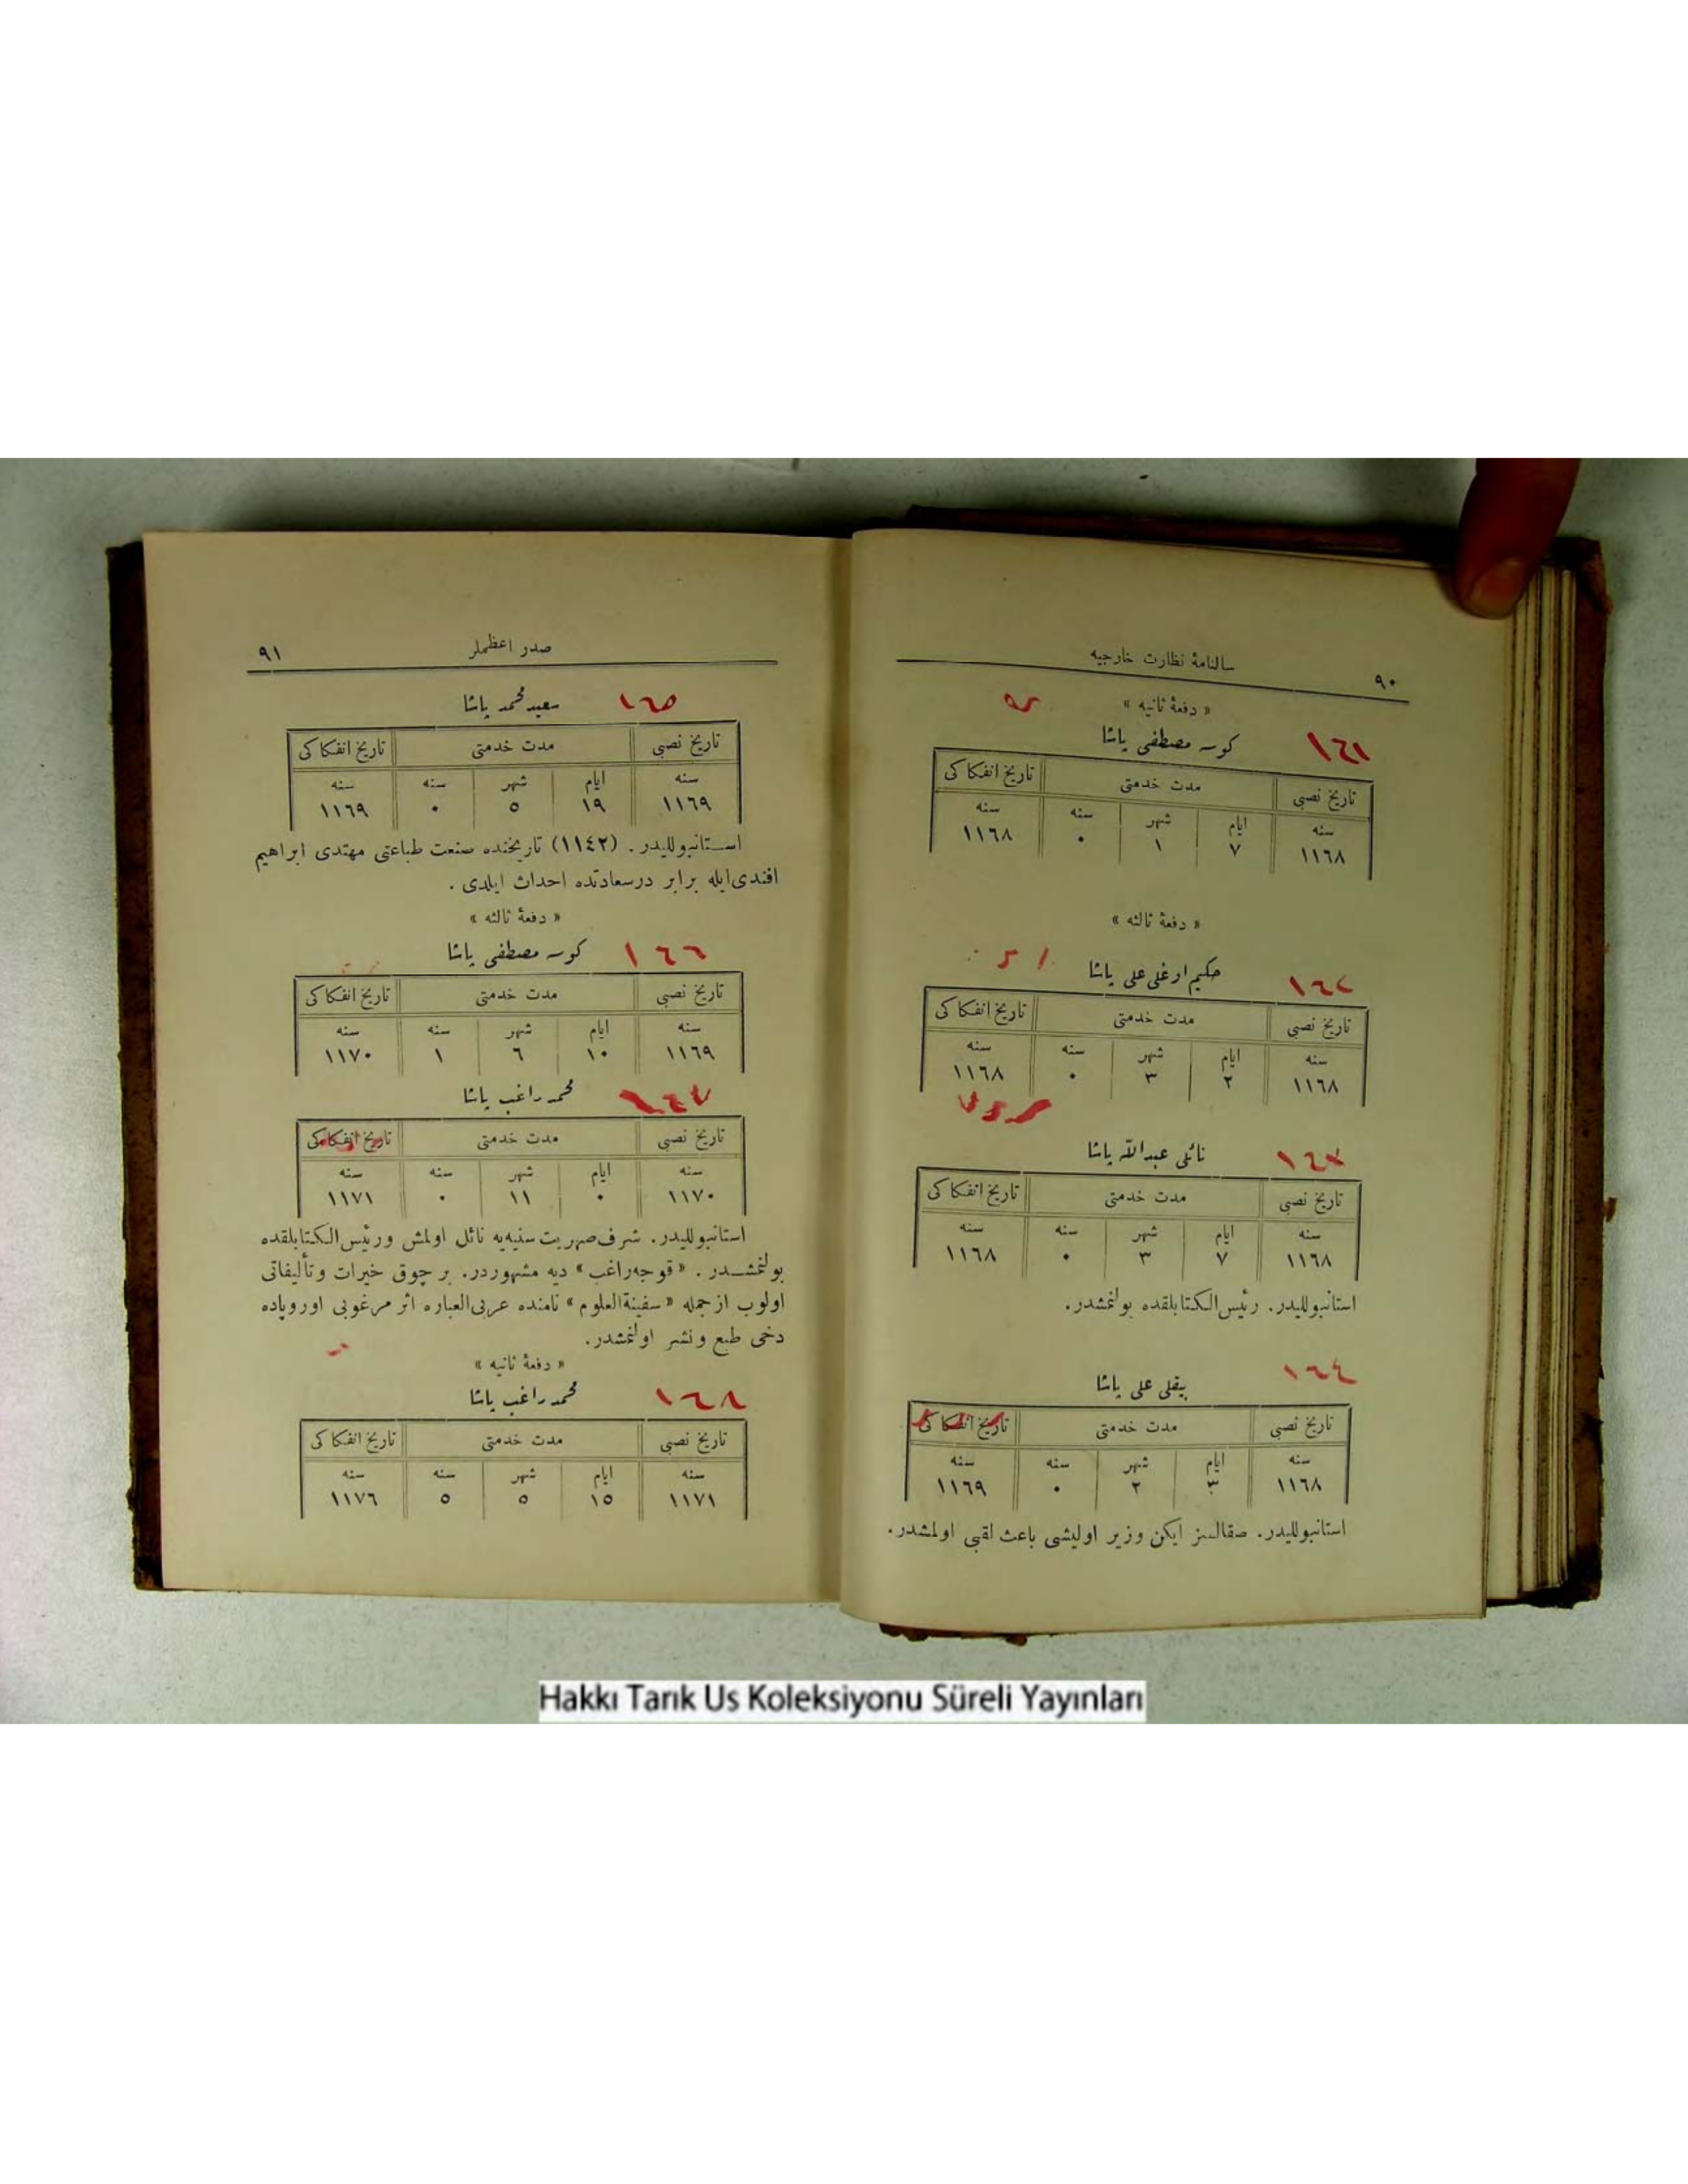 ٩٠
سالنامهٔ نظارت خارجیه
« دفعهٔ ثانیه »
١٦١
کوسه مصطفی پاشا
تاریخ نصبی مدت خدمتی تاریخ انفکاکی
سنه ایام شهر سنه سنه
١١٦٨ ٧ ١ ٠ ١١٦٨
« دفعهٔ ثالثه »
١٦٢
حکیم اوغلی علی پاشا
تاریخ نصبی مدت خدمتی تاریخ انفکاکی
سنه ایام شهر سنه سنه
١١٦٨ ٢ ٣ ٠ ١١٦٨
١٦٣
نائلی عبدالله پاشا
تاریخ نصبی مدت خدمتی تاریخ انفکاکی
سنه ایام شهر سنه سنه
١١٦٨ ٧ ٣ ٠ ١١٦٨
استانبوللیدر. رئیس‌الکتابلقده بولنمشدر.
١٦٤
بیقلی علی پاشا
تاریخ نصبی مدت خدمتی تاریخ انفکاکی
سنه ایام شهر سنه سنه
١١٦٨ ٣ ٢ ٠ ١١٦٩
استانبوللیدر. صقالسز ایکن وزیر اولیشی باعث لقبی اولمشدر.
صدر اعظملر
٩١
١٦٥
سعید محمد پاشا
تاریخ نصبی مدت خدمتی تاریخ انفکاکی
سنه ایام شهر سنه سنه
١١٦٩ ١٩ ٥ ٠ ١١٦٩
استانبوللیدر. (١١٤٢) تاریخنده صنعت طباعتی مهتدی ابراهیم
افندی‌ایله برابر درسعادتده احداث ایلدی.
« دفعهٔ ثالثه »
١٦٦
کوسه مصطفی پاشا
تاریخ نصبی مدت خدمتی تاریخ انفکاکی
سنه ایام شهر سنه سنه
١١٦٩ ١٠ ٦ ١ ١١٧٠
١٦٧
محمد راغب پاشا
تاریخ نصبی مدت خدمتی تاریخ انفکاکی
سنه ایام شهر سنه سنه
١١٧٠ ٠ ١١ ٠ ١١٧١
استانبوللیدر. شرف صهریت سنیه‌یه نائل اولمش ورئیس‌الکتابلقده
بولنمشدر. « قوجه‌راغب » دیه مشهوردر. بر چوق خیرات وتألیفاتی
اولوب ازجمله « سفینة‌العلوم » نامنده عربی‌العباره اثر مرغوبی اوروپاده
دخی طبع ونشر اولنمشدر.
« دفعهٔ ثانیه »
١٦٨
محمد راغب پاشا
تاریخ نصبی مدت خدمتی تاریخ انفکاکی
سنه ایام شهر سنه سنه
١١٧١ ١٥ ٥ ٥ ١١٧٦
Hakkı Tarık Us Koleksiyonu Süreli Yayınları